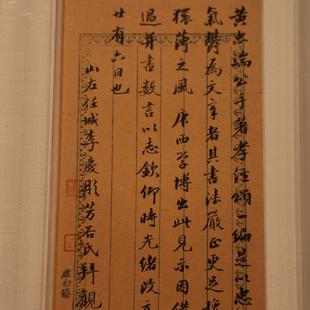 黄忠端公手著孝经頌一編足以忠
氣欝為文章者其書法嚴正更足換
穤薄之風 康西学博出此見示因借
過并書数言以志欽仰時光緒改元
廿有六日也
山左任城李慶彤芳石氏拜觀